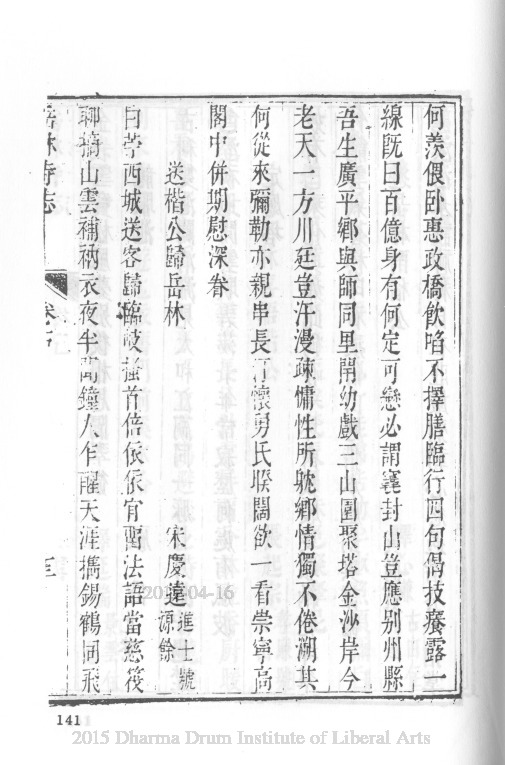 何羨偎卧惠政橋飲啗不擇膳臨行四句偈技癢露一
線既曰百億身有何定可戀必謂褰封山豈應別州縣
吾生廣平鄉與師同里閈幼戲三山圍聚塔金沙岸今
老天一方川廷豈汗漫疎慵性所躭鄉情獨不倦溯其
何從來彌勒亦親串長汀懷男氏暌闊欲一看崇寧高
閣中併期慰深眷
送楷公歸岳林
宋慶遠
進士號
源餘
白苧西城送客歸臨岐搔首倍依依宵畱法語當慈筏
聊摘山雲補衲衣夜半聞鐘人乍醒天涯擕錫鶴同飛
岳林寺志
卷
141
2015-04-16
2015 Dharma Drum Institute of Liberal Arts